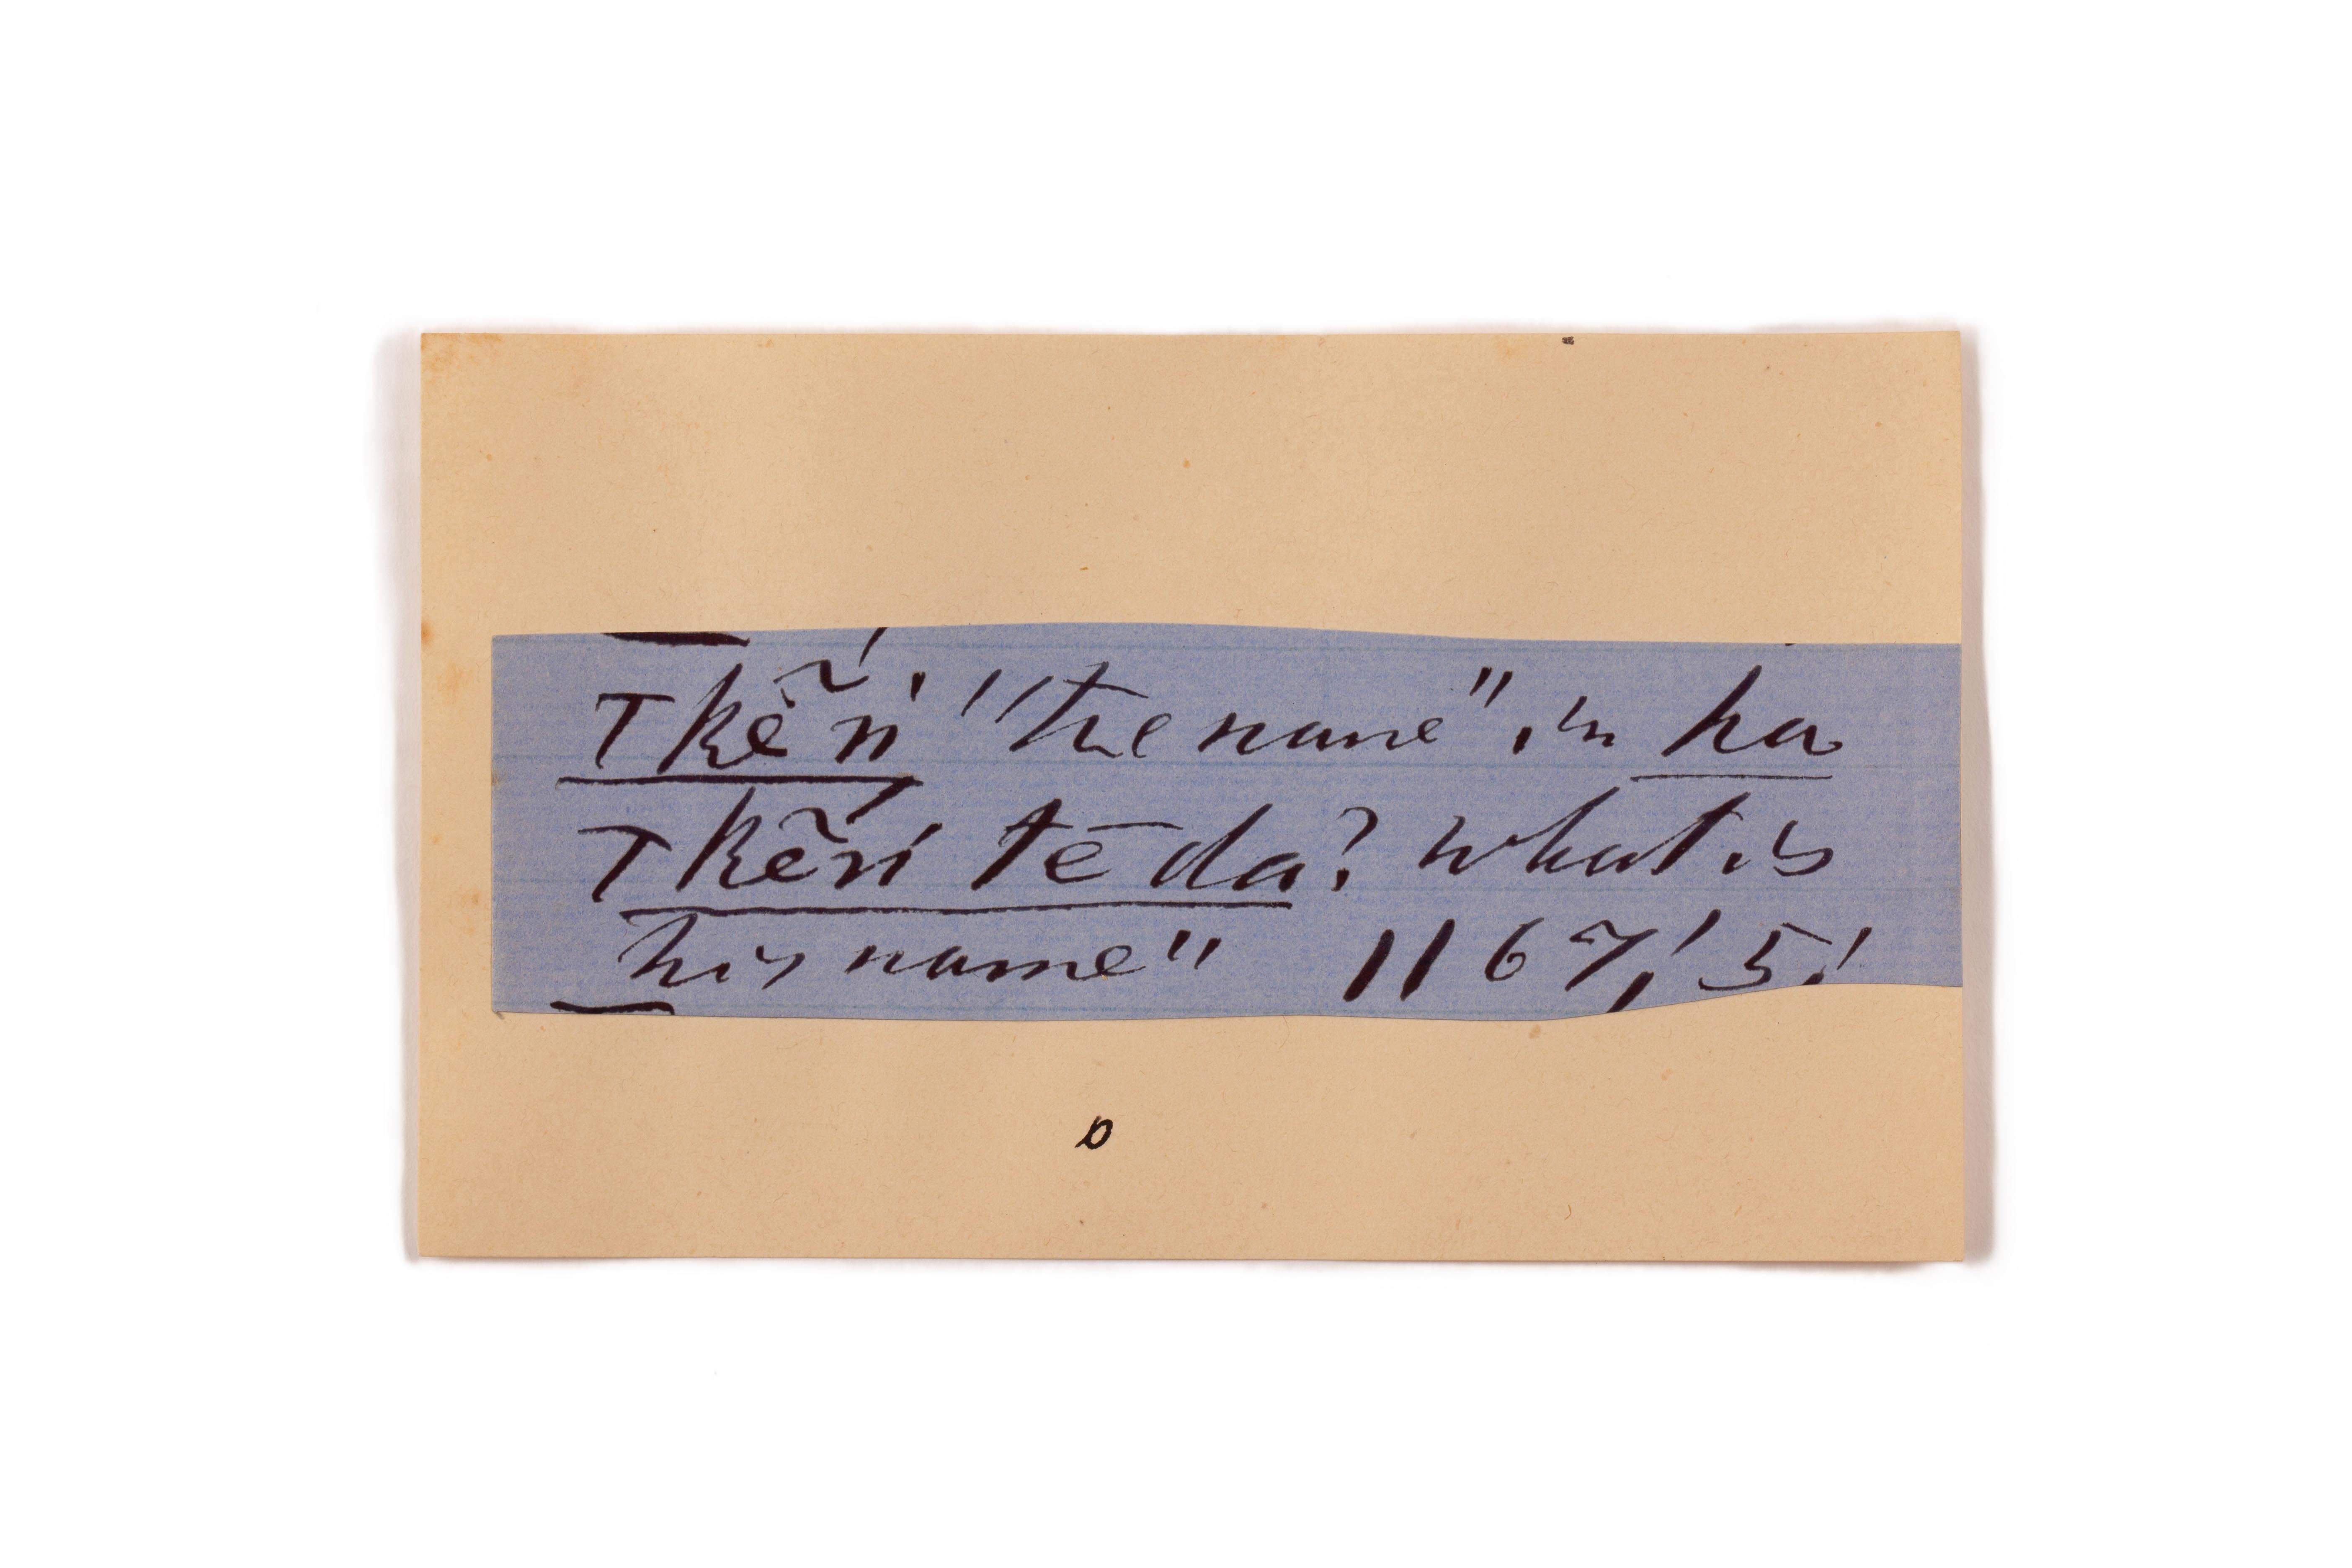 Tkẽn' "the name" in ha
Tkẽń tēda? what is
his name" 1167, 5,
o